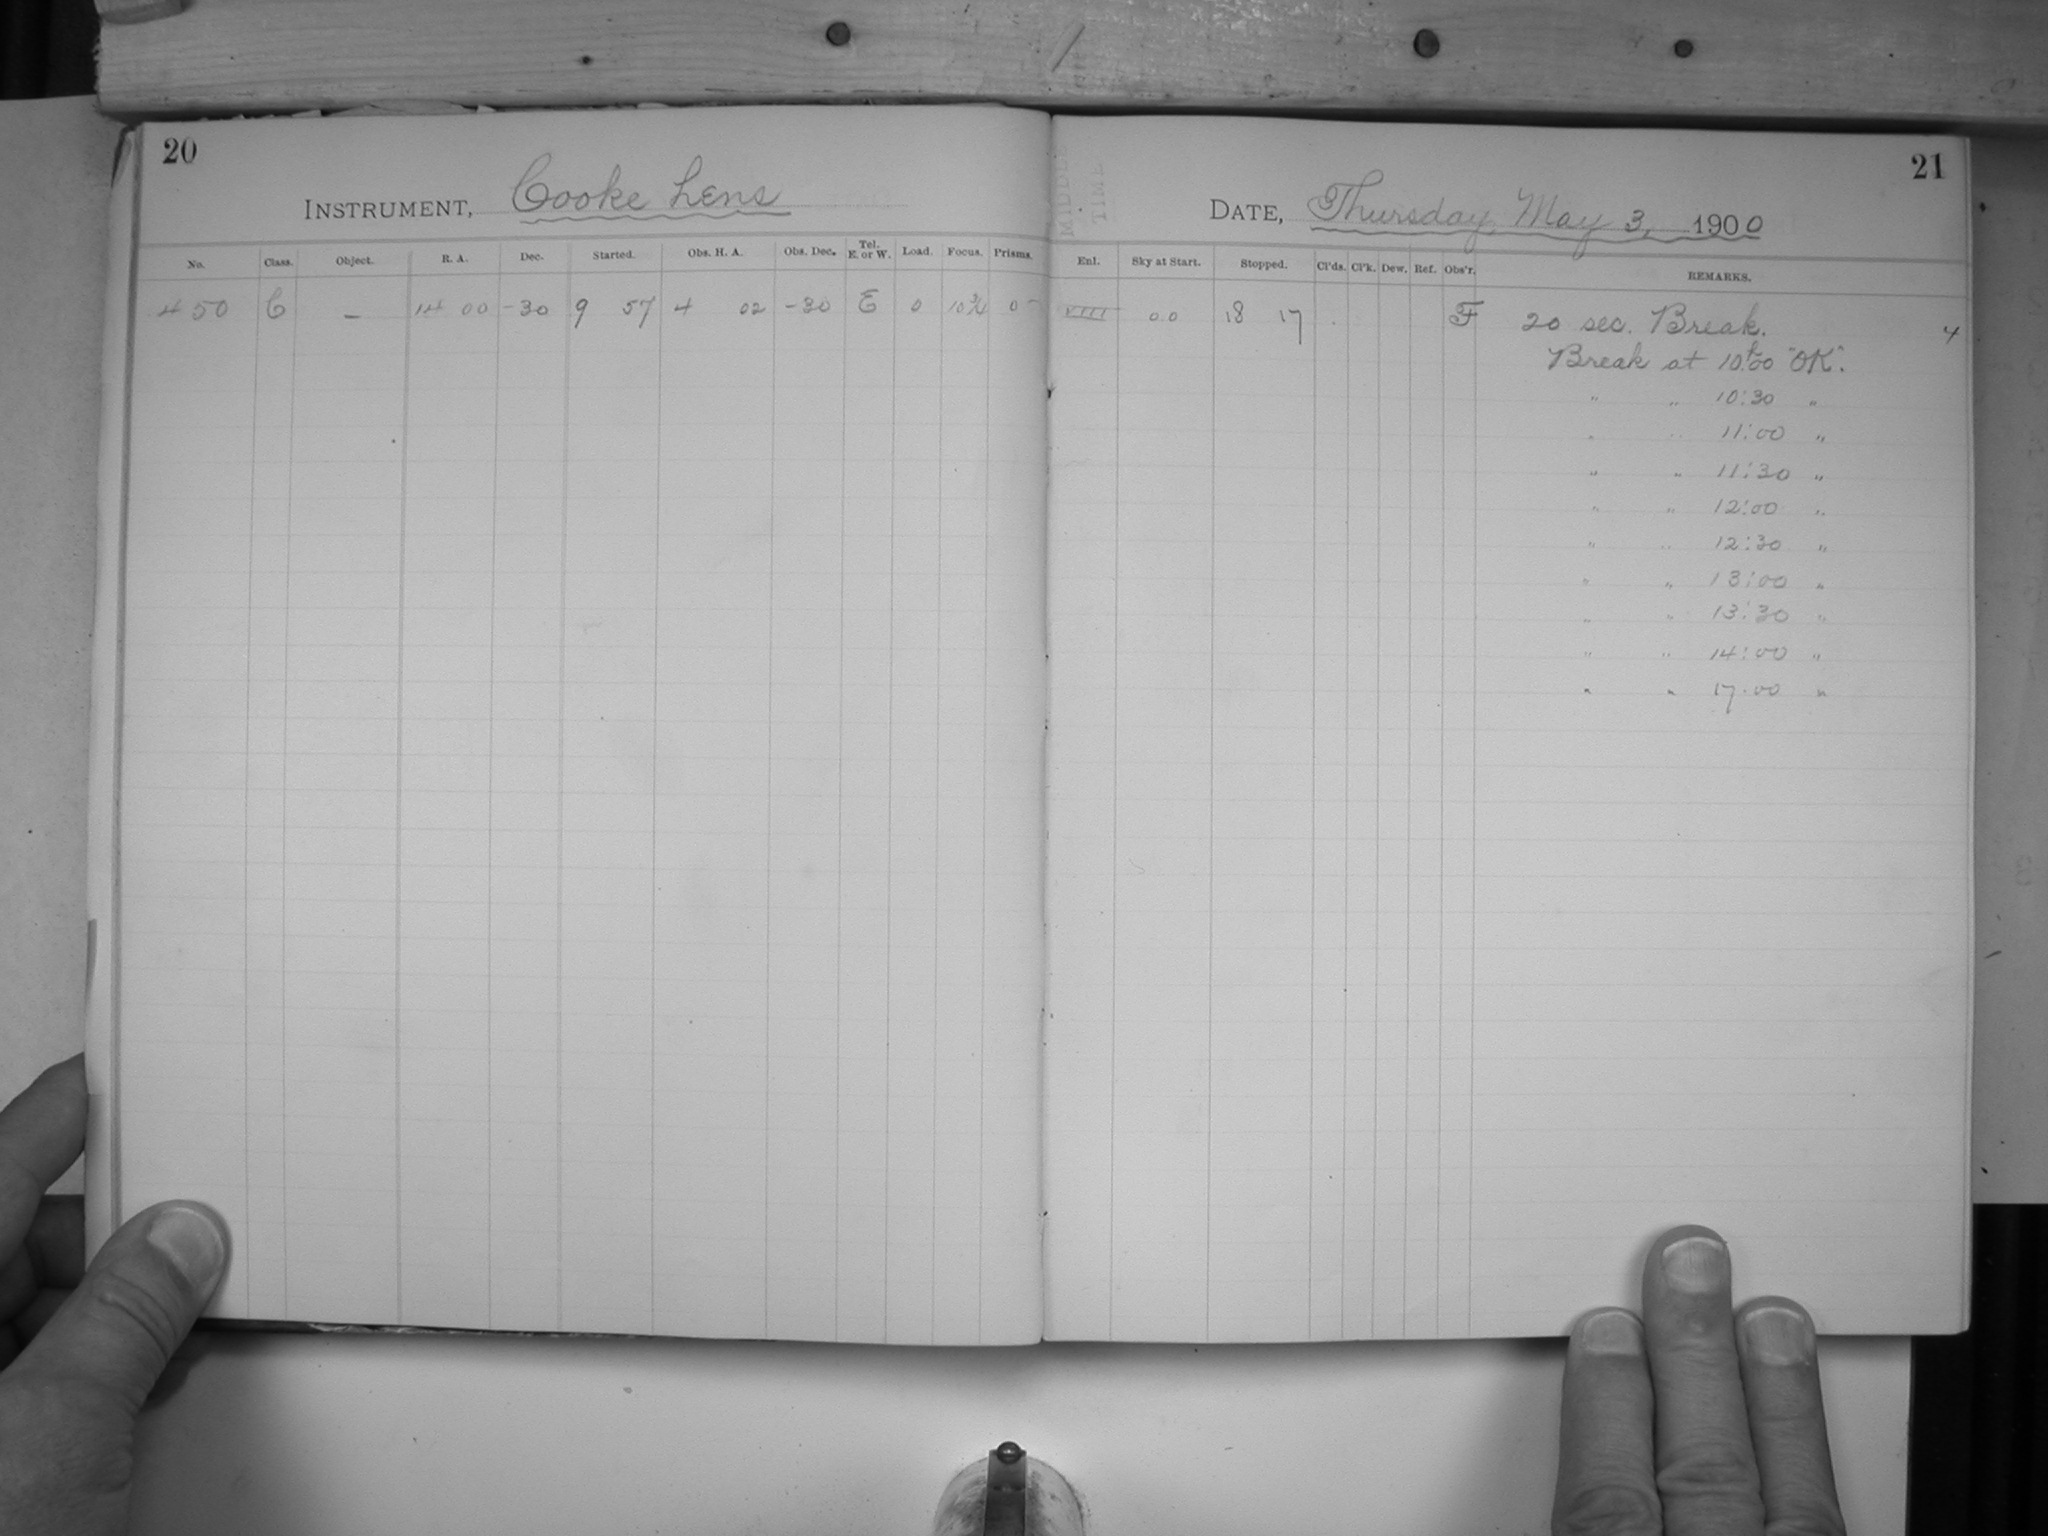 20
INSTRUMENT, Cooke Lens
No. Class. Object. R. A. Dec. Started. Obs. H. A. Obs. Dec. Tel. E. or W. Load. Focus. Prisms.
450 C – 14 00 -30 9 57 4 02 -30 E 0 10¾ 0
21
DATE, Thursday, May 3, 1900
Enl. Sky at Start. Stopped. Cl'ds. Cl'k. Dew. Ref. Obs'r. REMARKS.
VIIII 00 18 17 F 20 sec. Break. 4
Break at 10:00 "OK".
" " 10:30 "
" " 11:00 "
" " 11:30 "
" " 12:00 "
" " 12:30 "
" " 13:00 "
" " 13:30 "
" " 14:00 "
" " 17.00 "